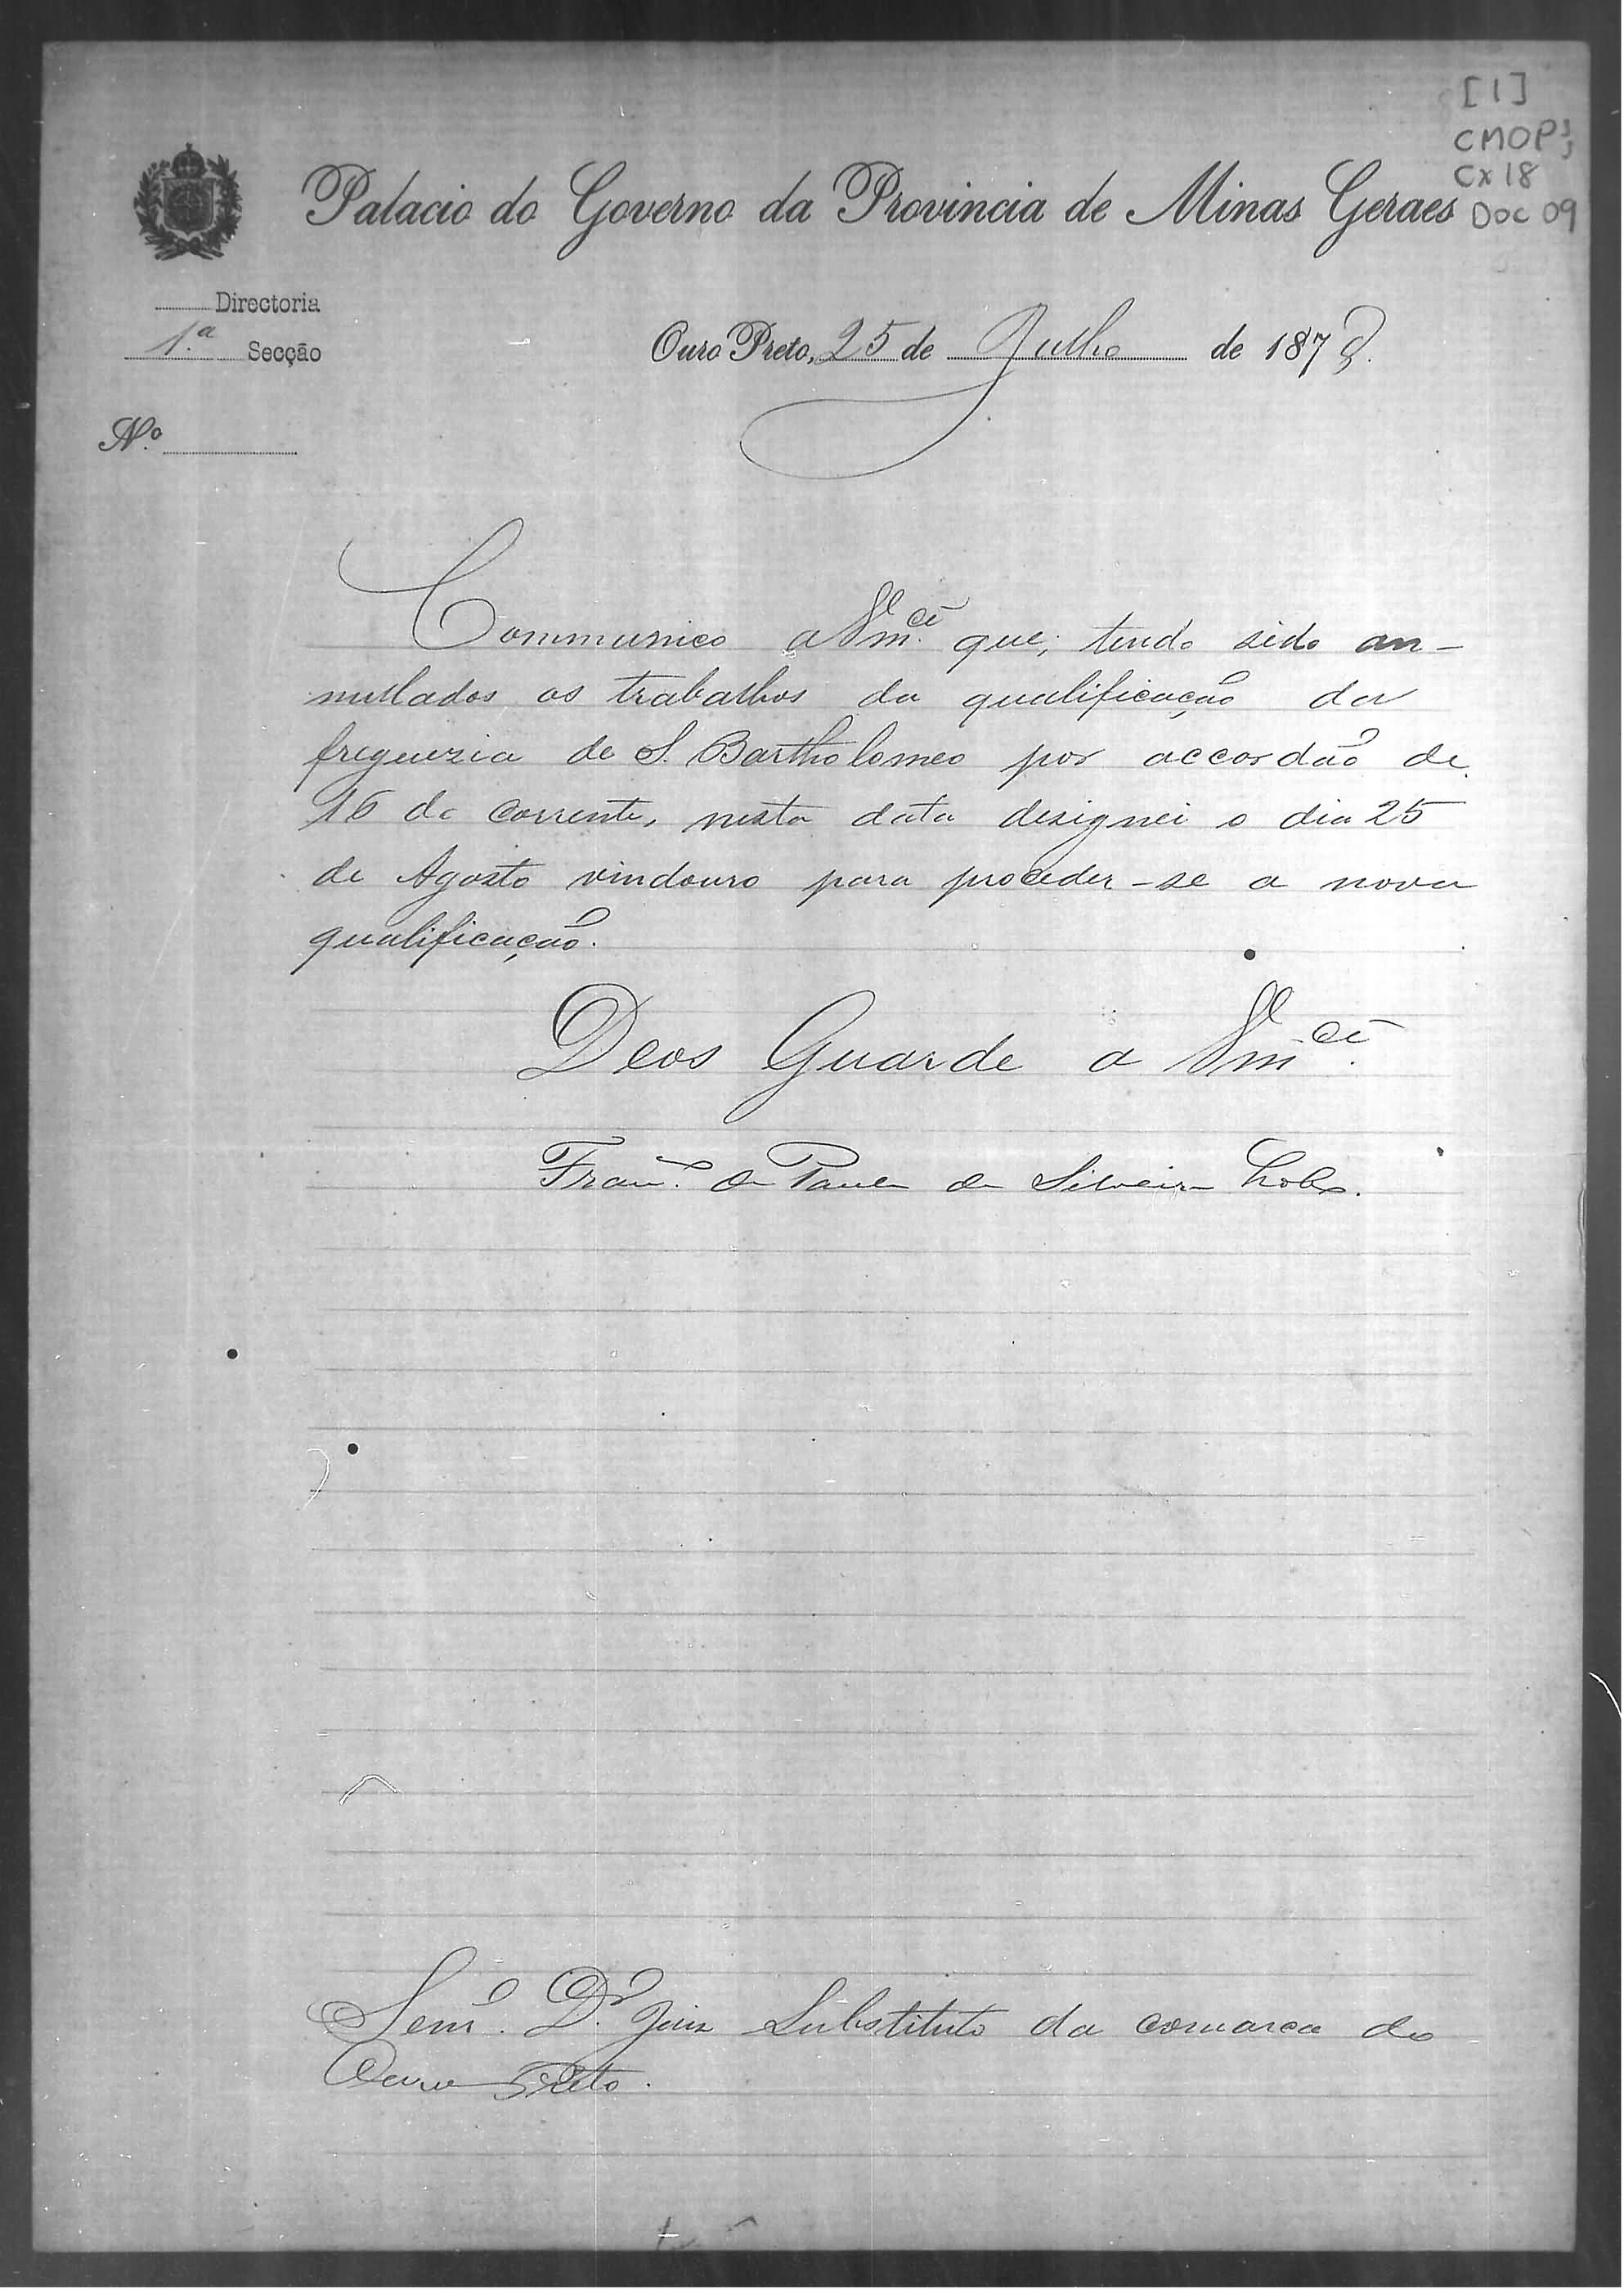 [1]
CMOP;
Cx 18
Doc 09
Palacio do Governo da Provincia de Minas Geraes
Directoria
1.ª Secção
Ouro Preto, 25 de Julho de 1878.
N.º
Communico a Vm.cê que, tendo sido an-
nullados os trabalhos da qualificação da
freguezia de S. Bartholomeo por accordão de
16 do corrente, nesta data designei o dia 25
de Agosto vindouro para proceder-se a nova
qualificação.
Deos Guarde a Vm.cê
Fran.co de Paula da Silveira Lobo.
Senr. Dr. Juiz Substituto da comarca do
Ouro Preto.